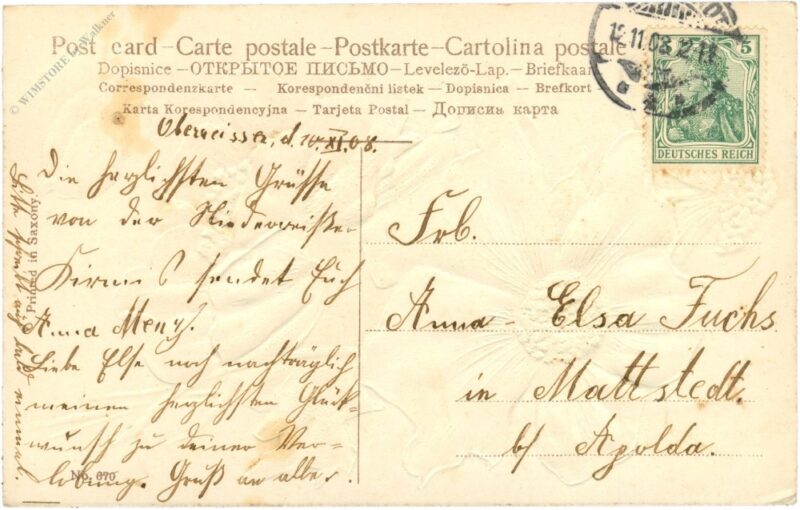 © WIMSTORE by Walkner
Post card - Carte postale - Postkarte - Cartolina postale
Dopisnice - ОТКРЫТОЕ ПИСЬМО - Levelező-Lap. - Briefkaar
Correspondenzkarte - Korespondenční listek - Dopisnica - Brefkort
Karta Korespondencyjna - Tarjeta Postal - Дописна карта
12.11.08. 
5
DEUTSCHES REICH
Oberreissen, d. 10.XI.08.
Die herzlichsten Grüsse
von der Niederreißer
Kirmes sendet Euch
Anna
Liebe Else noch nachträglich
meinen herzlichsten Glück-
wunsch zu deiner Ver-
lobung. Gruß an alle.
Bitte auf einmal.
Printed in Saxony.
No. 670
Frl.
Anna - Elsa Fuchs
in Mattstedt.
b/ Apolda.